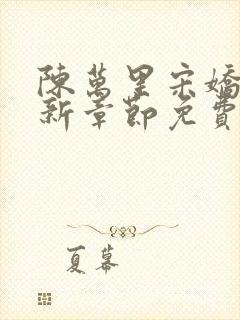 陳萬里宋嬌
新章節免費
夏蟬